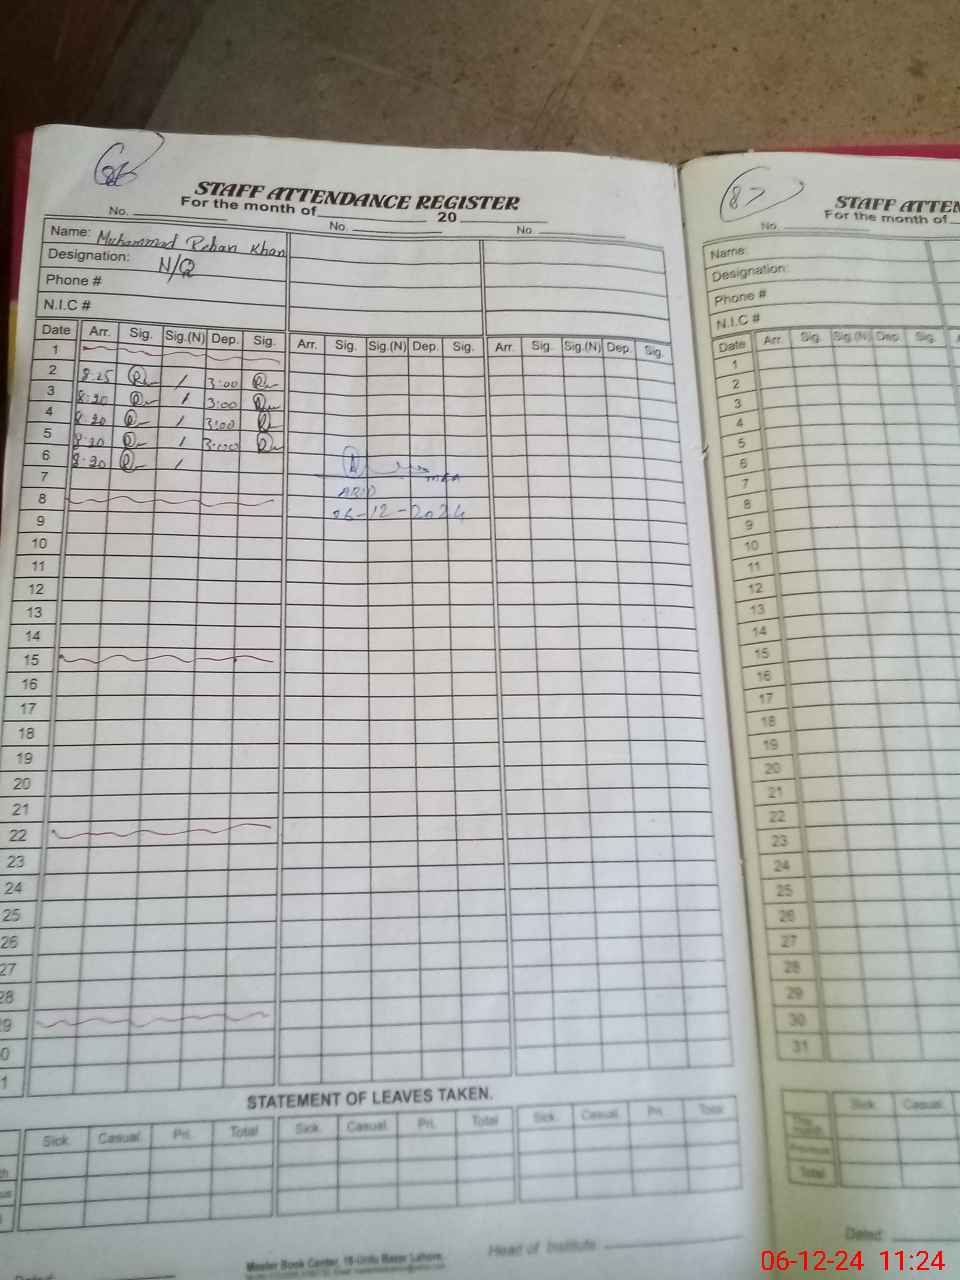 STAFF ATTENDANCE REGISTER
For the month of 20
No. No. No.
Name: Muhammad Rehan Khan
Designation: N/Q
Phone #
N.I.C #
Date Arr. Sig. Sig.(N) Dep. Sig. Arr. Sig. Sig.(N) Dep. Sig. Arr. Sig. Sig.(N) Dep. Sig.
1
2 8:25 / 3:00
3 8:20 / 3:00
4 8:20 / 3:00
5 8:20 / 3:00
6 8:20 /
7
8
9
10
11
12
13
14
15
16
17
18
19
20
21
22
23
24
25
26
27
28
29
STATEMENT OF LEAVES TAKEN.
Sick. Casual. Pri. Total Sick. Casual. Pri. Total Sick. Casual. Pri. Total
Master Book Center, 18-Urdu Bazar Lahore.
Head of Institute
87
STAFF ATTEN
For the month of
No.
Name:
Designation:
Phone #
N.I.C #
Date Arr. Sig. Sig.(N) Dep. Sig.
1
2
3
4
5
6
7
8
9
10
11
12
13
14
15
16
17
18
19
20
21
22
23
24
25
26
27
28
29
30
31
Sick. Casual.
This month
Previous
Total
Dated:
06-12-24 11:24